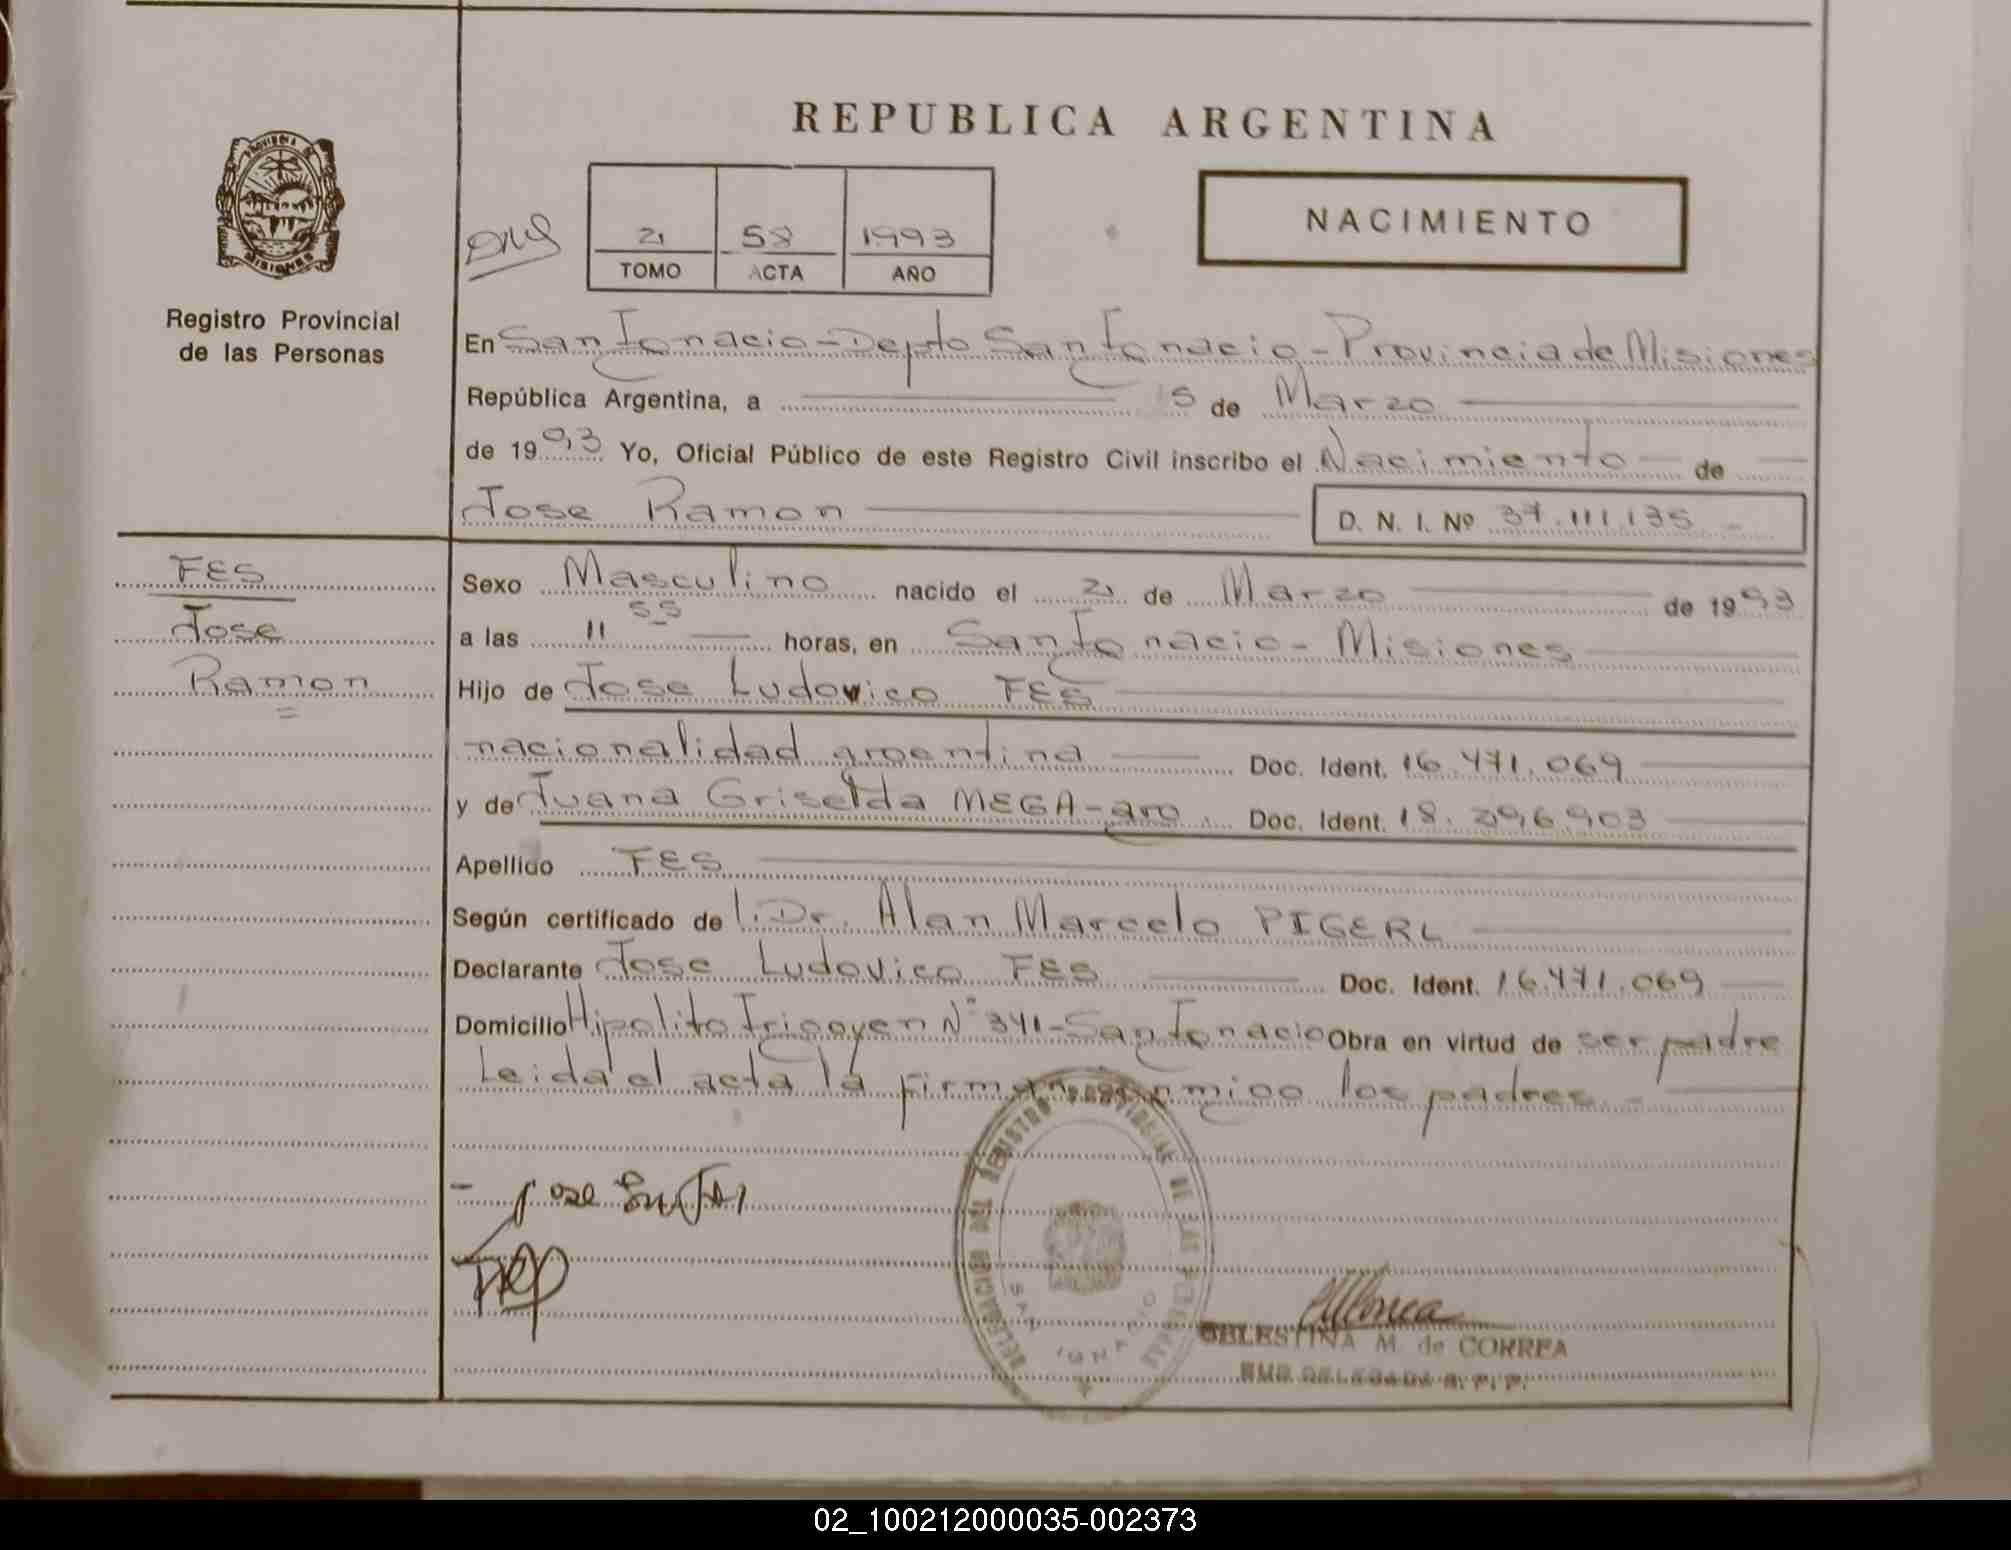 REPUBLICA ARGENTINA
PROVINCIA DE MISIONES
Registro Provincial
de las Personas
DNS
21 58 1993
TOMO ACTA AÑO
NACIMIENTO
En San Ignacio - Depto San Ignacio - Provincia de Misiones
República Argentina, a 15 de Marzo
de 1993 Yo, Oficial Público de este Registro Civil inscribo el Nacimiento de
Jose Ramon D. N. I. Nº 37.111.135
FES
Jose
Ramon
Sexo Masculino nacido el de Marzo de 1993
a las 11 55 horas, en San Ignacio - Misiones
Hijo de Jose Ludovico FES
nacionalidad argentina Doc. Ident. 16.471.069
y de Juana Griselda MEGA - arg. Doc. Ident. 18.296.903
Apellido FES
Según certificado de l. Dr. Alan Marcelo PIGERL
Declarante Jose Ludovico FES Doc. Ident. 16.471.069
Domicilio Hipolito Irigoyen Nº 341 - San Ignacio Obra en virtud de ser padre
Leida el acta la firman conmigo los padres.
DELEGACION DEL REGISTRO PROVINCIAL DE LAS PERSONAS
SAN IGNACIO
CELESTINA M. de CORREA
SUB DELEGADA R. P. P.
02_100212000035-002373